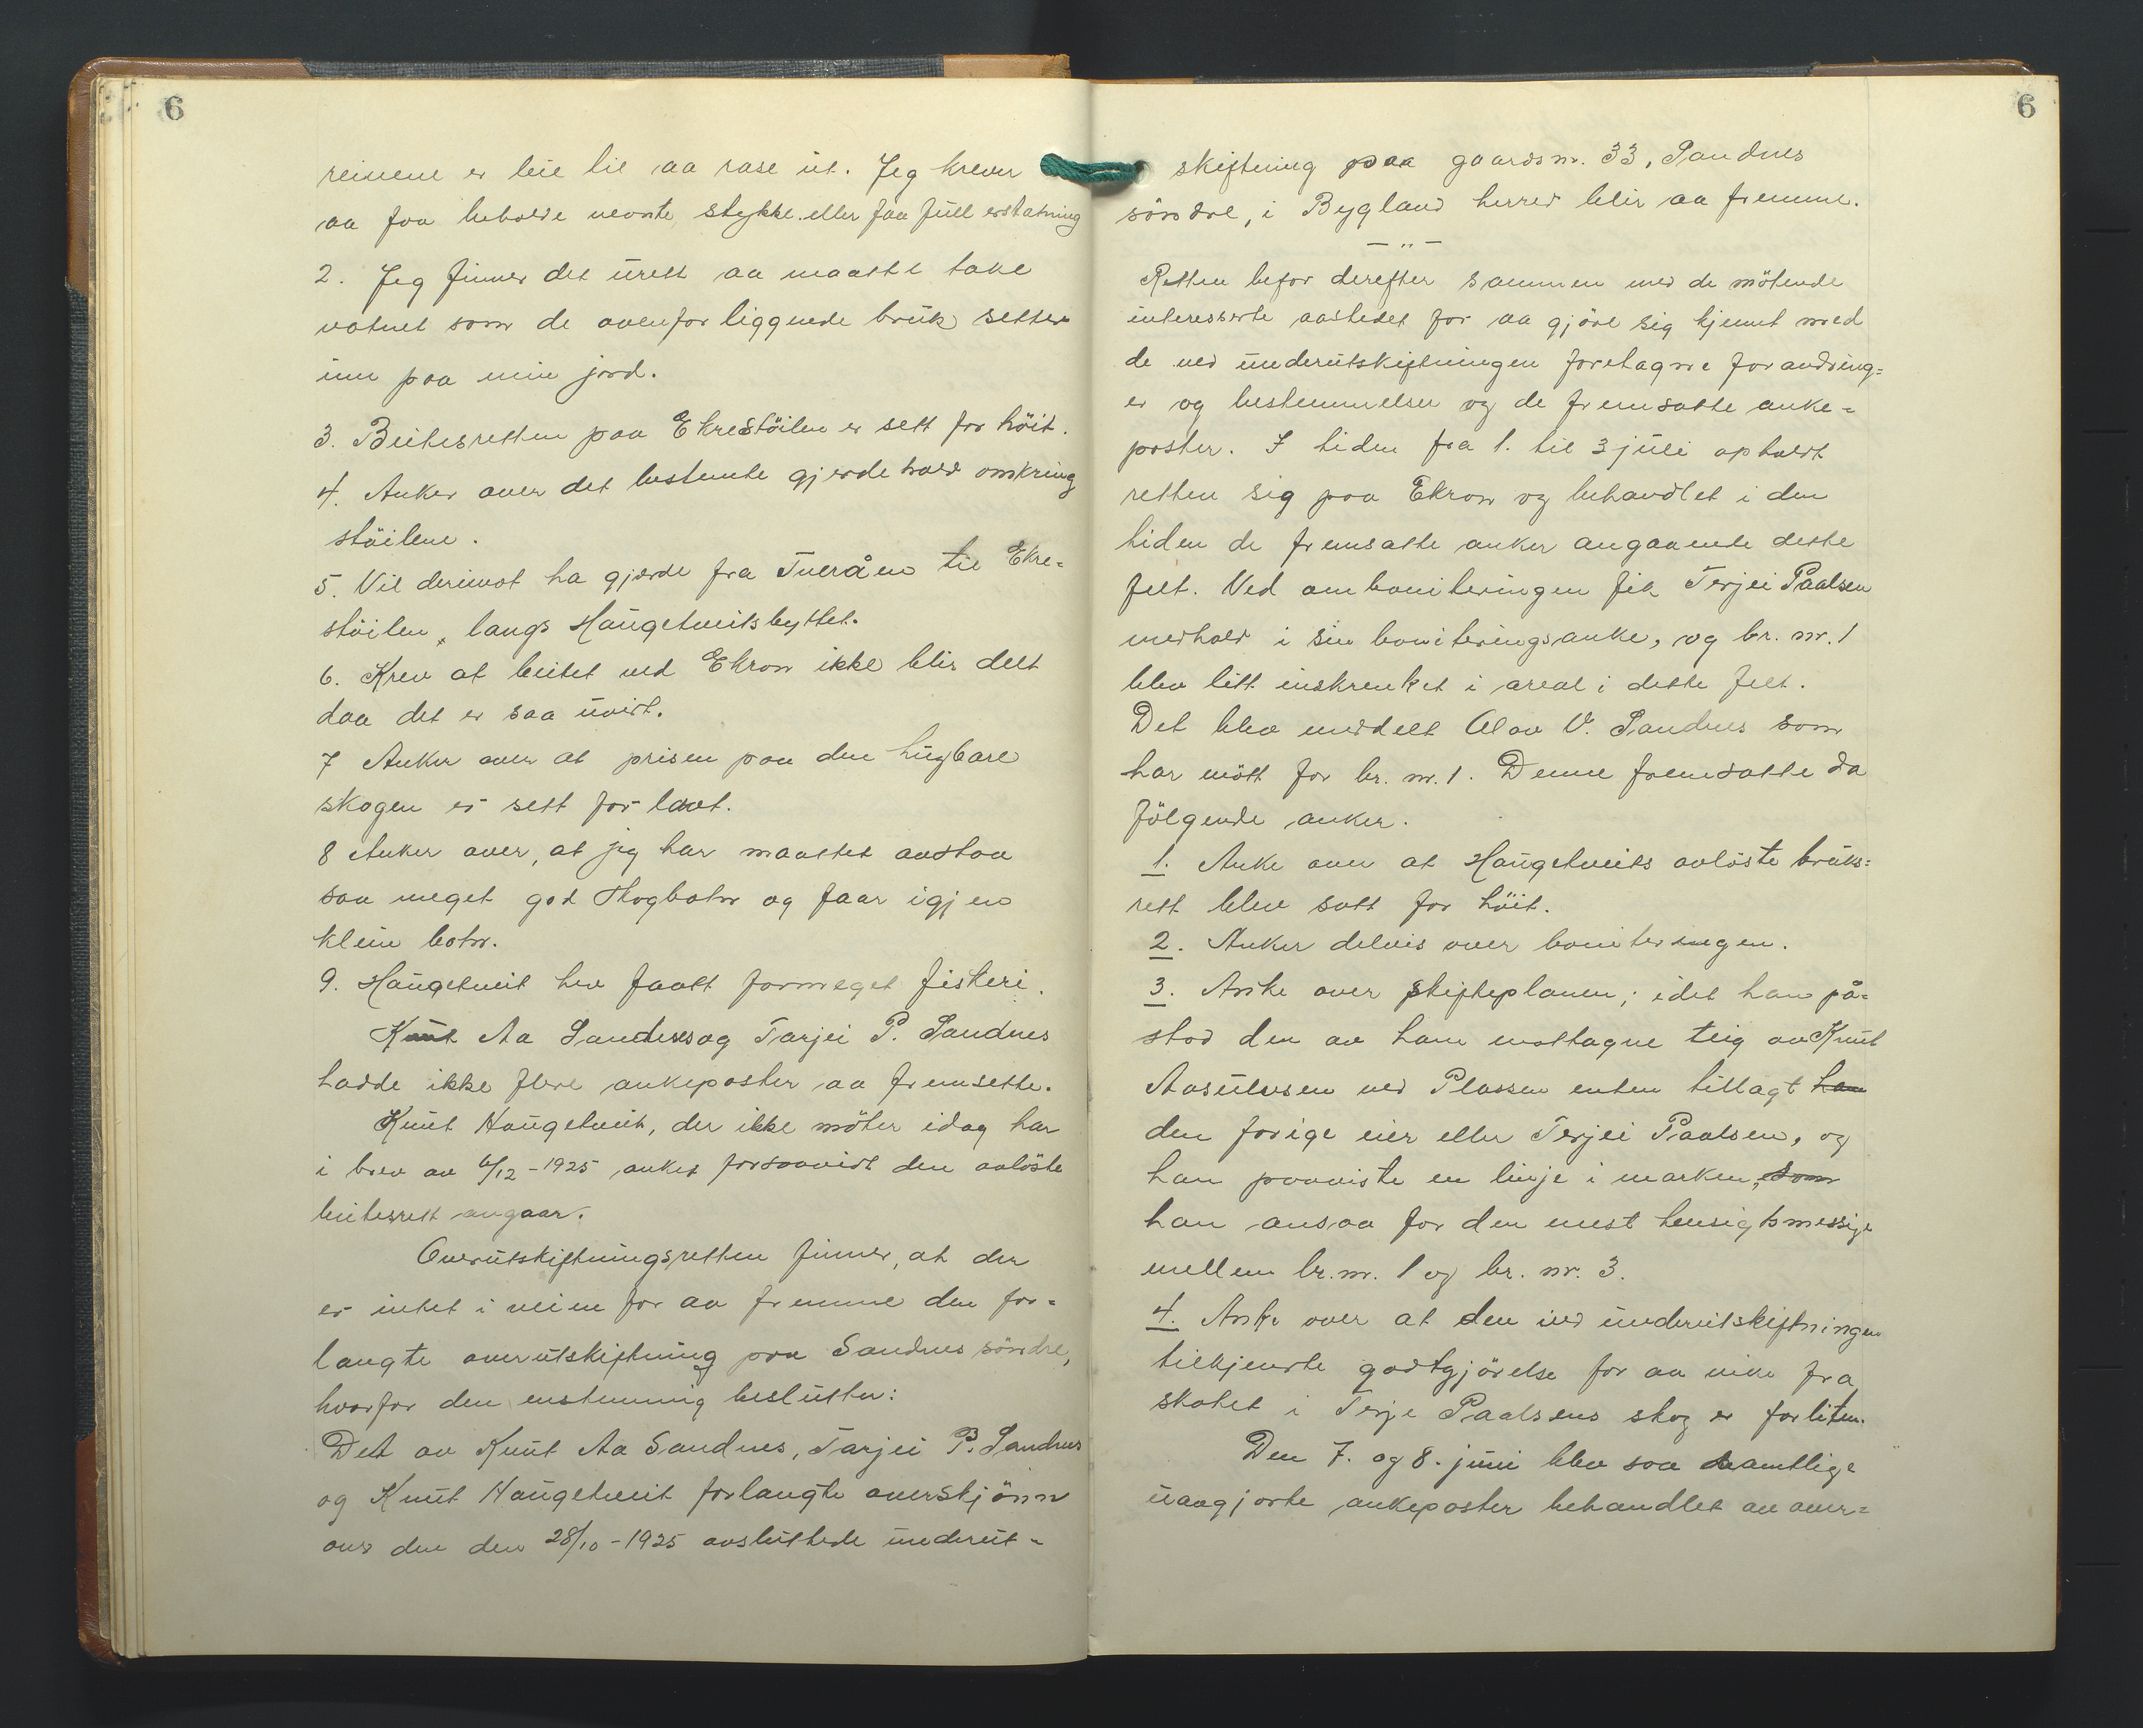 6
reinene er leie til aa rase ut. Jeg krever
aa faa beholde nevnte stykke eller faa full erstatning
2. Jeg finner det urett aa maatte take
vatnet som de ovenfor liggende bruk setter
inn paa min jord.
3. Beitesretten paa Ekrestöilen er sett for höit.
4. Anker over det bestemte gjerdehold omkring
stöilene.
5. Vil derimot ha gjerde fra Tveråen til Ekre-
stöilen, langs Haugetveitsbyttet.
6. Krev at beitet ved Ekron ikke blir delt
daa det er saa uvirt.
7 Anker over at prisen paa den hugbare
skogen er sett for lavt.
8 Anker over, at jeg har maattet avstaa
saa meget god skogbotn og faar igjen
klein botn.
9. Haugetveit hev faatt formeget fiskeri.
Knut Aa Sandnes og Tarjei P. Sandnes
hadde ikke flere ankeposter aa fremsette.
Knut Haugetveit, der ikke möter idag har
i brev av 6/12-1925 anket forsaavidt den avlöste
beitesrett angaar.
Overutskiftningsretten finner, at der
er intet i veien for aa fremme den for-
langte overutskiftning paa Sandnes söndre,
hvorfor den enstemmig beslutter:
Det av Knut Aa Sandnes, Tarjei P. Sandnes
og Knut Haugetveit forlangte overskjönn
over den den 28/10-1925 avsluttede underut-
6
skiftning paa gaardsnr. 33, Sandnes
söndre, i Bygland herred blir aa fremme.
— " —
Retten befor derefter sammen med de mötende
interesserte aastedet for aa gjöre sig kjennt med
de ved underutskiftningen foretagne forandring-
er og bestemmelser og de fremsatte anke-
poster. I tiden fra 1. til 3 juli opholdt
retten sig paa Ekron og behandlet i den
tiden de fremsatte anker angaaende dette
felt. Ved omboniteringen fik Terjei Paalsen
medhold i sin boniteringsanke, og br. nr. 1
blev litt inskrenket i areal i dette felt.
Det blev meddelt Olav V. Sandnes som
har mött for br. nr. 1. Denne fremsatte da
fölgende anker.
1. Anke over at Haugetveits avlöste bruks-
rett blev satt for höit.
2. Anker delvis over boniteringen.
3. Anke over skifteplanen; idet han på-
stod den av ham mottagne teig av Knut
Aasulvsen ved Plassen enten tillagt ham
den forige eier eller Terjei Paalsen, og
han paaviste en linje i marken, som
han ansaa for den mest hensigtsmessige
mellem br. nr. 1 og br. nr. 3.
4. Anke over at den ved underutskiftningen
tilkjennte godtgjörelse for aa vike fra
skatet i Terje Paalsens skog er forliten.
Den 7. og 8. juni blev saa samtlige
uavgjorte ankeposter behandlet av over-